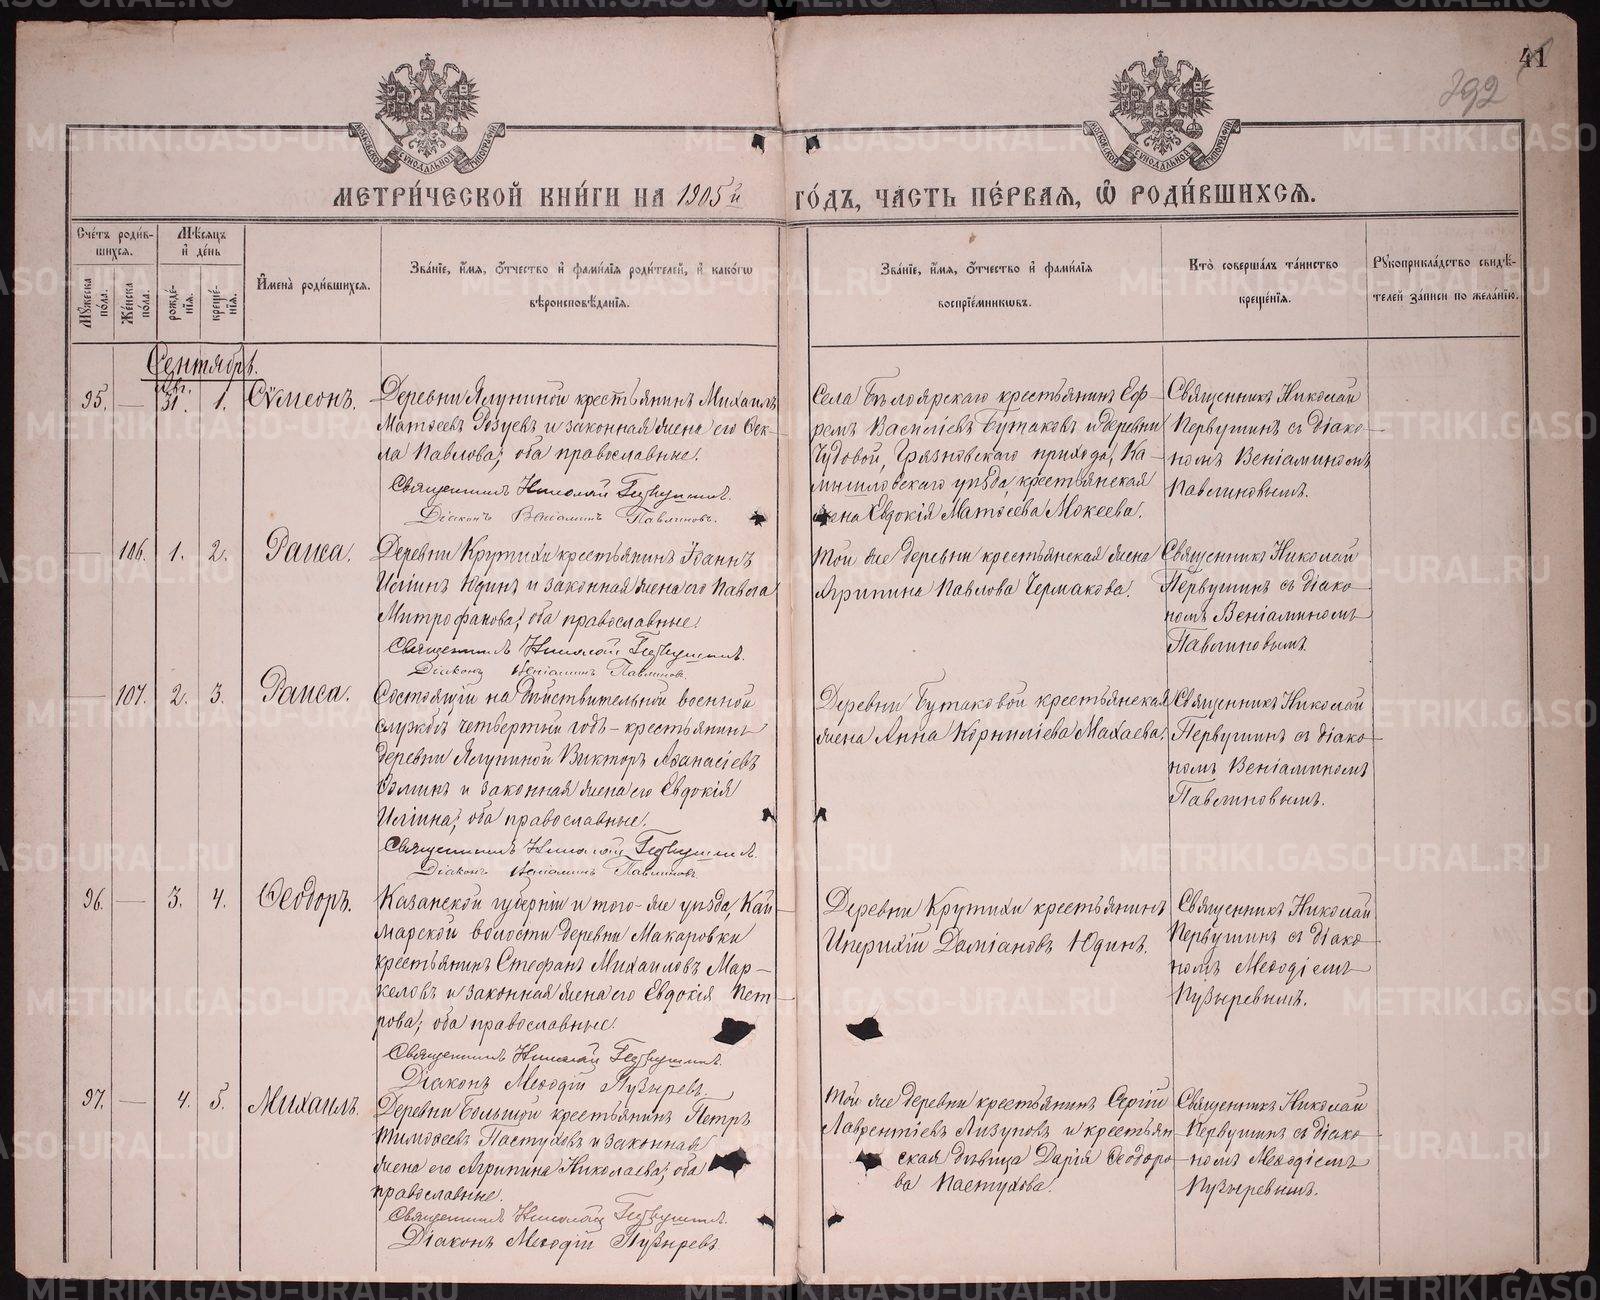 41
392
МЕТРИ́ЧЕСКОЙ КНИ́ГИ НА 1905й ГО́ДЪ, ЧАСТЬ ПЕ́РВАЯ, Ѡ РОДИ́ВШИХСЯ.
Сче́тъ роди́в-
шихся.
Мѣ́сяцъ
и де́нь
Му́жеска
по́ла.
Же́нска
по́ла.
рожде́-
нія.
креще́-
нія.
Имена̀ роди́вшихся.
Зва́ніе, и́мя, ѻ́тчество и фами́лія роди́телей, и како́гѡ
вѣроисповѣ́данія.
Зва́ніе, и́мя, ѻ́тчество и фами́лія
воспріе́мникѡвъ.
Кто̀ соверша́лъ та́инство
креще́нія.
Рꙋкоприкла́дство свидѣ́-
телей за́писи по жела́нію.
Сентябрь.
95. — Авг. 31. 1. Сѵмеонъ.
Деревни Ялуниной крестьянинъ Михаилъ
Матѳеевъ Розуевъ и законная жена его Ѳек-
ла Павлова; оба православные.
Священникъ Николай Первушинъ.
Діаконъ Веніаминъ Павлиновъ.
Села Бѣлоярскаго крестьянинъ Еф-
ремъ Василіевъ Бутаковъ и деревни
Чудовой, Грязновскаго прихода, Ка-
мышловскаго уѣзда, крестьянская
жена Евдокія Матѳеева Мокеева.
Священникъ Николай
Первушинъ съ діако-
номъ Веніаминомъ
Павлиновымъ.
— 106. 1. 2. Раиса.
Деревни Крутихи крестьянинъ Іоаннъ
Иліинъ Юдинъ и законная жена его Павла
Митрофанова; оба православные.
Священникъ Николай Первушинъ.
Діаконъ Веніаминъ Павлиновъ.
Той же деревни крестьянская жена
Агрипина Павлова Чермакова.
Священникъ Николай
Первушинъ съ діако-
номъ Веніаминомъ
Павлиновымъ.
— 107. 2. 3. Раиса.
Состоящій на дѣйствительной военной
службѣ четвертый годъ - крестьянинъ
деревни Ялуниной Викторъ Аѳанасіевъ
и законная жена его Евдокія
Иліина; оба православные.
Священникъ Николай Первушинъ.
Діаконъ Веніаминъ Павлиновъ.
Деревни Бутаковой крестьянская
жена Анна Корниліева Махаева.
Священникъ Николай
Первушинъ съ діако-
номъ Веніаминомъ
Павлиновымъ.
96. — 3. 4. Ѳеодоръ.
Казанской губерніи и того-же уѣзда, Кай-
марской волости деревни Макаровки
крестьянинъ Стефанъ Михаиловъ Мар-
келовъ и законная жена его Евдокія Пет-
рова; оба православные.
Священникъ Николай Первушинъ.
Діаконъ Меѳодій Пузыревъ.
Деревни Крутихи крестьянинъ
Даміановъ Юдинъ.
Священникъ Николай
Первушинъ съ діако-
номъ Меѳодіемъ
Пузыревымъ.
97. — 4. 5. Михаилъ.
Деревни Большой крестьянинъ Петръ
Тимоѳеевъ Пастуховъ и законная
жена его Агрипина Николаева; оба
православные.
Священникъ Николай Первушинъ.
Діаконъ Меѳодій Пузыревъ
Той же деревни крестьянинъ Сергій
Лаврентіевъ Лизуновъ и крестьян-
ская дѣвица Дарія Ѳеодоро-
ва Пастухова.
Священникъ Николай
Первушинъ съ діако-
номъ Меѳодіемъ
Пузыревымъ.
METRIKI.GASO-URAL.RU